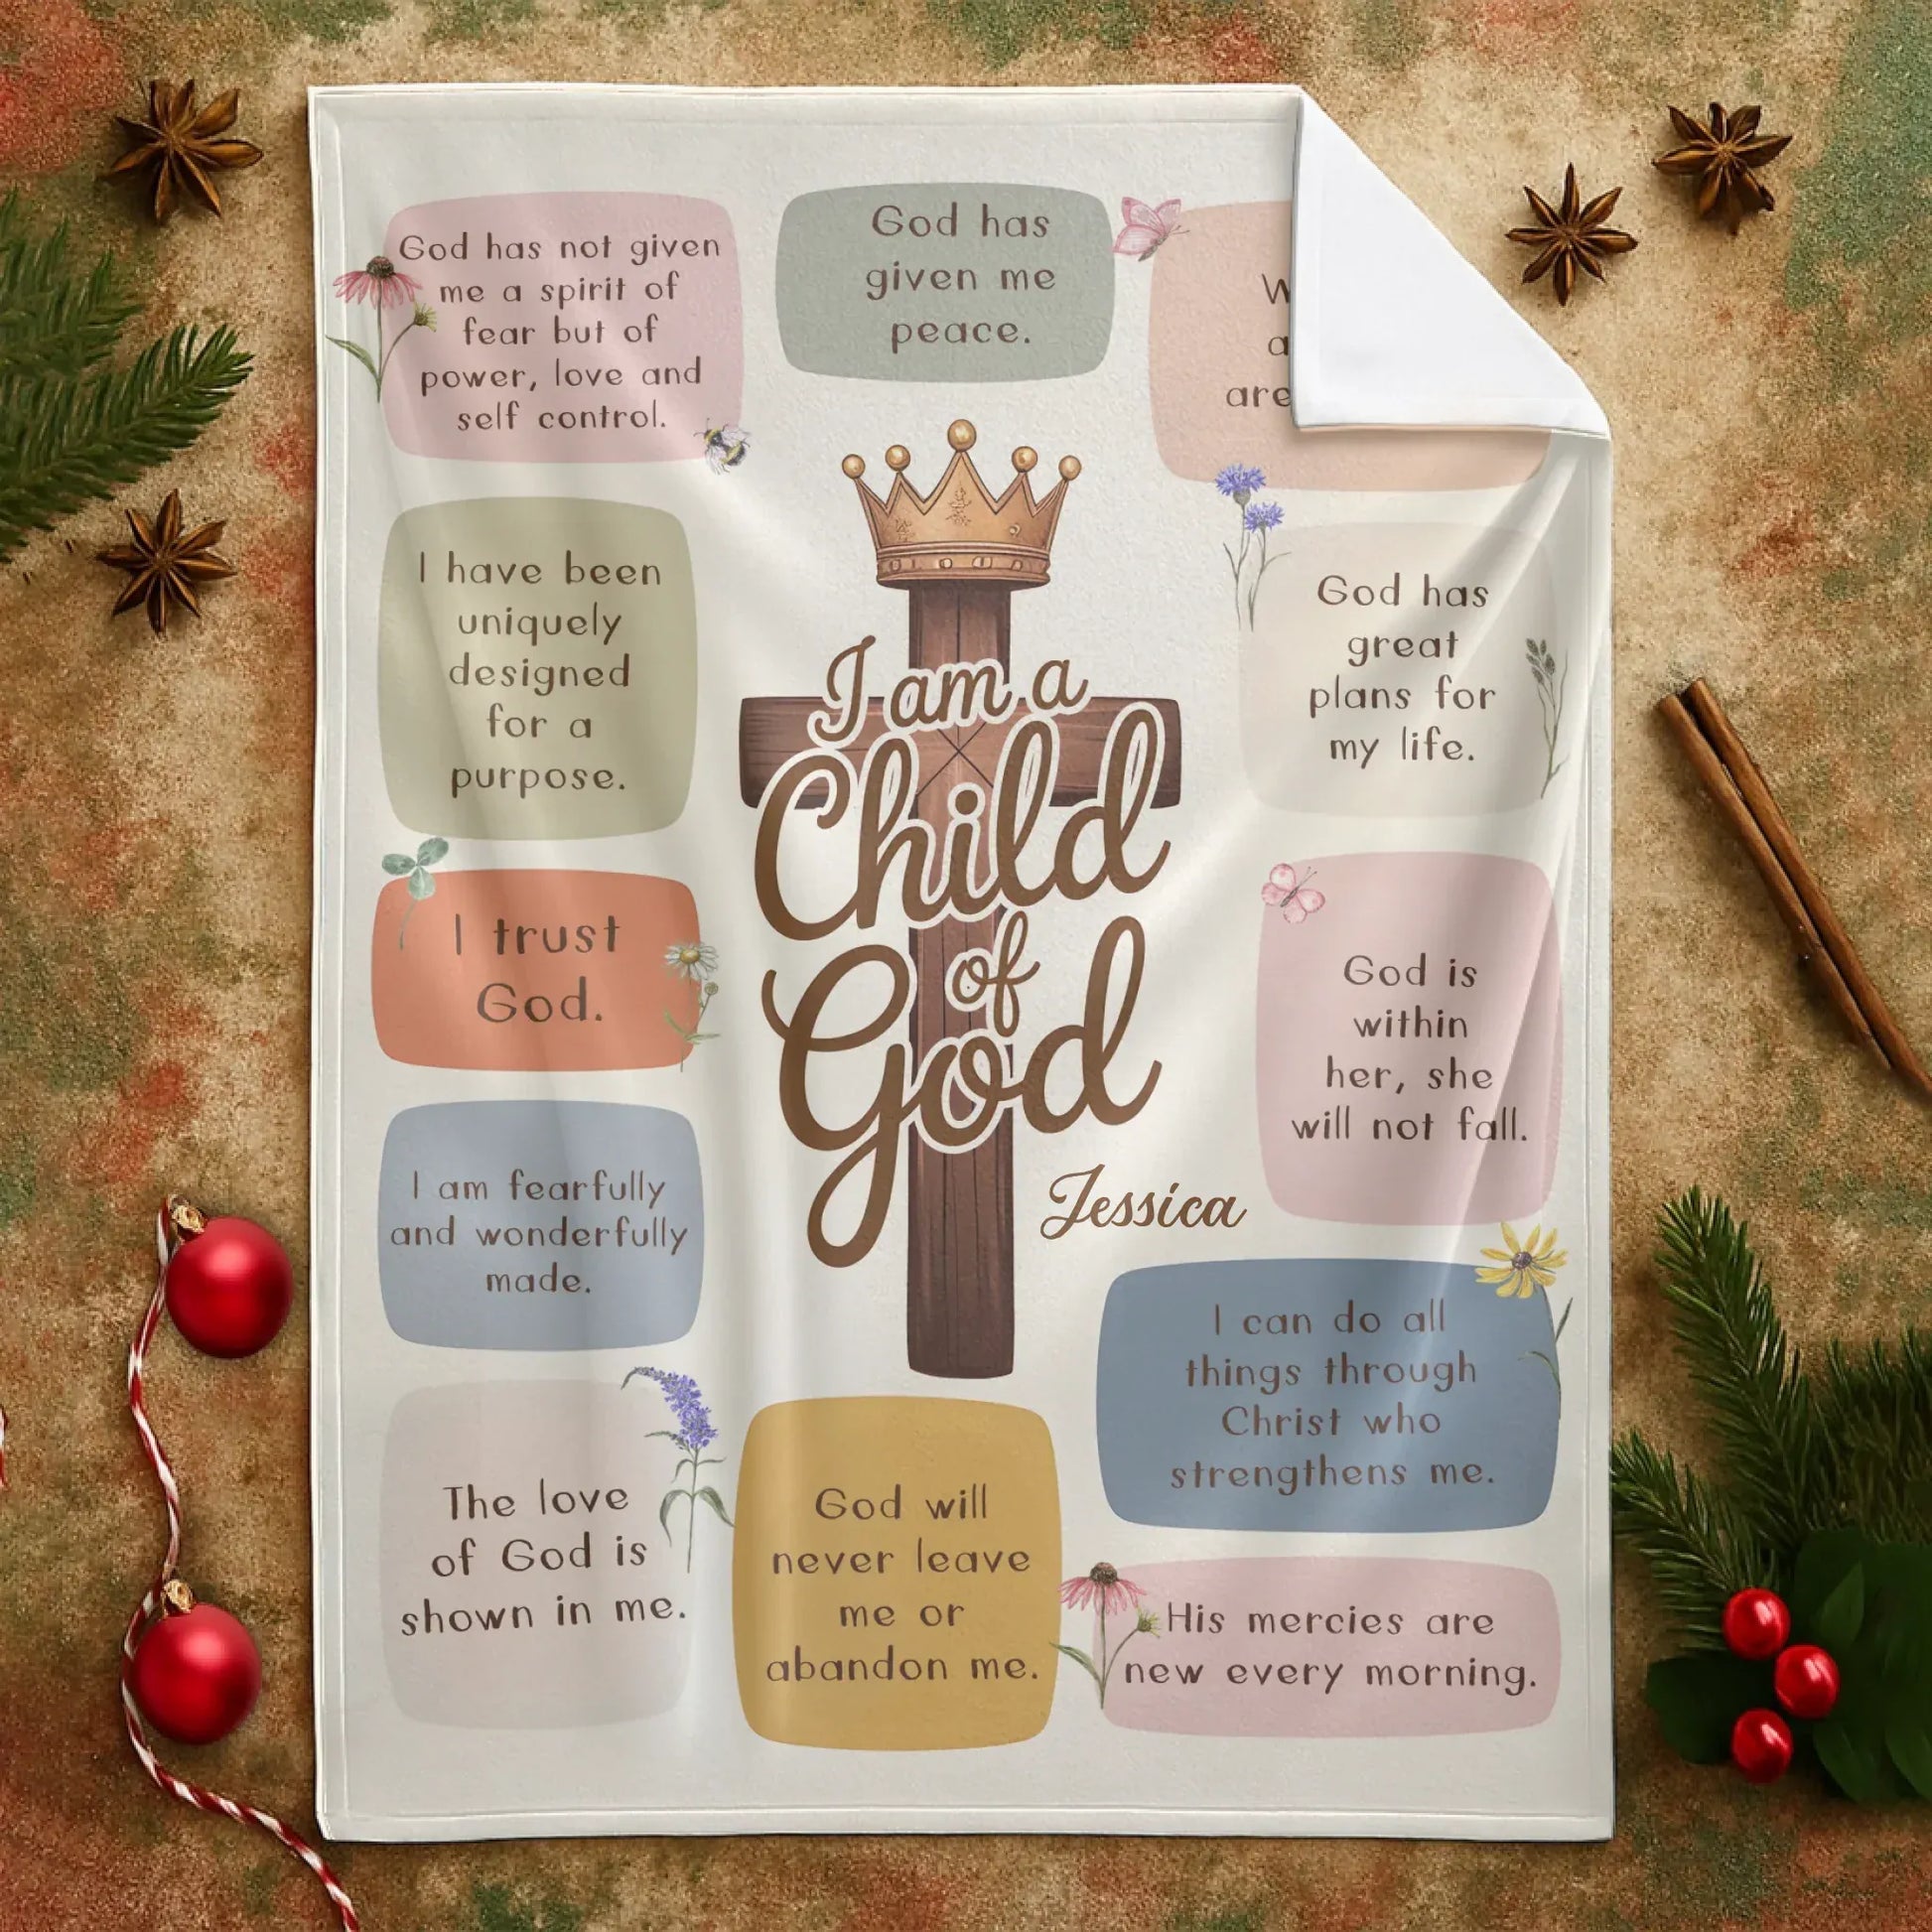 God has not given
me a spirit of
fear but of
power, love and
self control.
God has
given me
peace.
are
I have been
uniquely
designed
for a
purpose.
God has
great
plans for
my life.
I am a
Child
of
God
Jessica
I trust
God.
God is
within
her, she
will not fall.
I am fearfully
and wonderfully
made.
I can do all
things through
Christ who
strengthens me.
The love
of God is
shown in me.
God will
never leave
me or
abandon me.
His mercies are
new every morning.